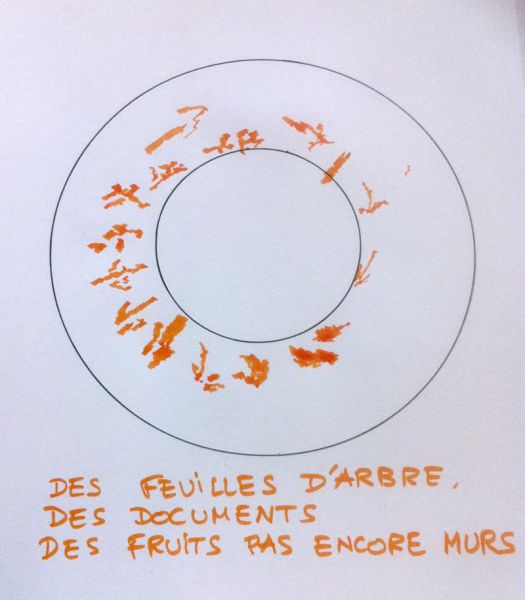 DES FEUILLES D'ARBRE,
DES DOCUMENTS
DES FRUITS PAS ENCORE MURS